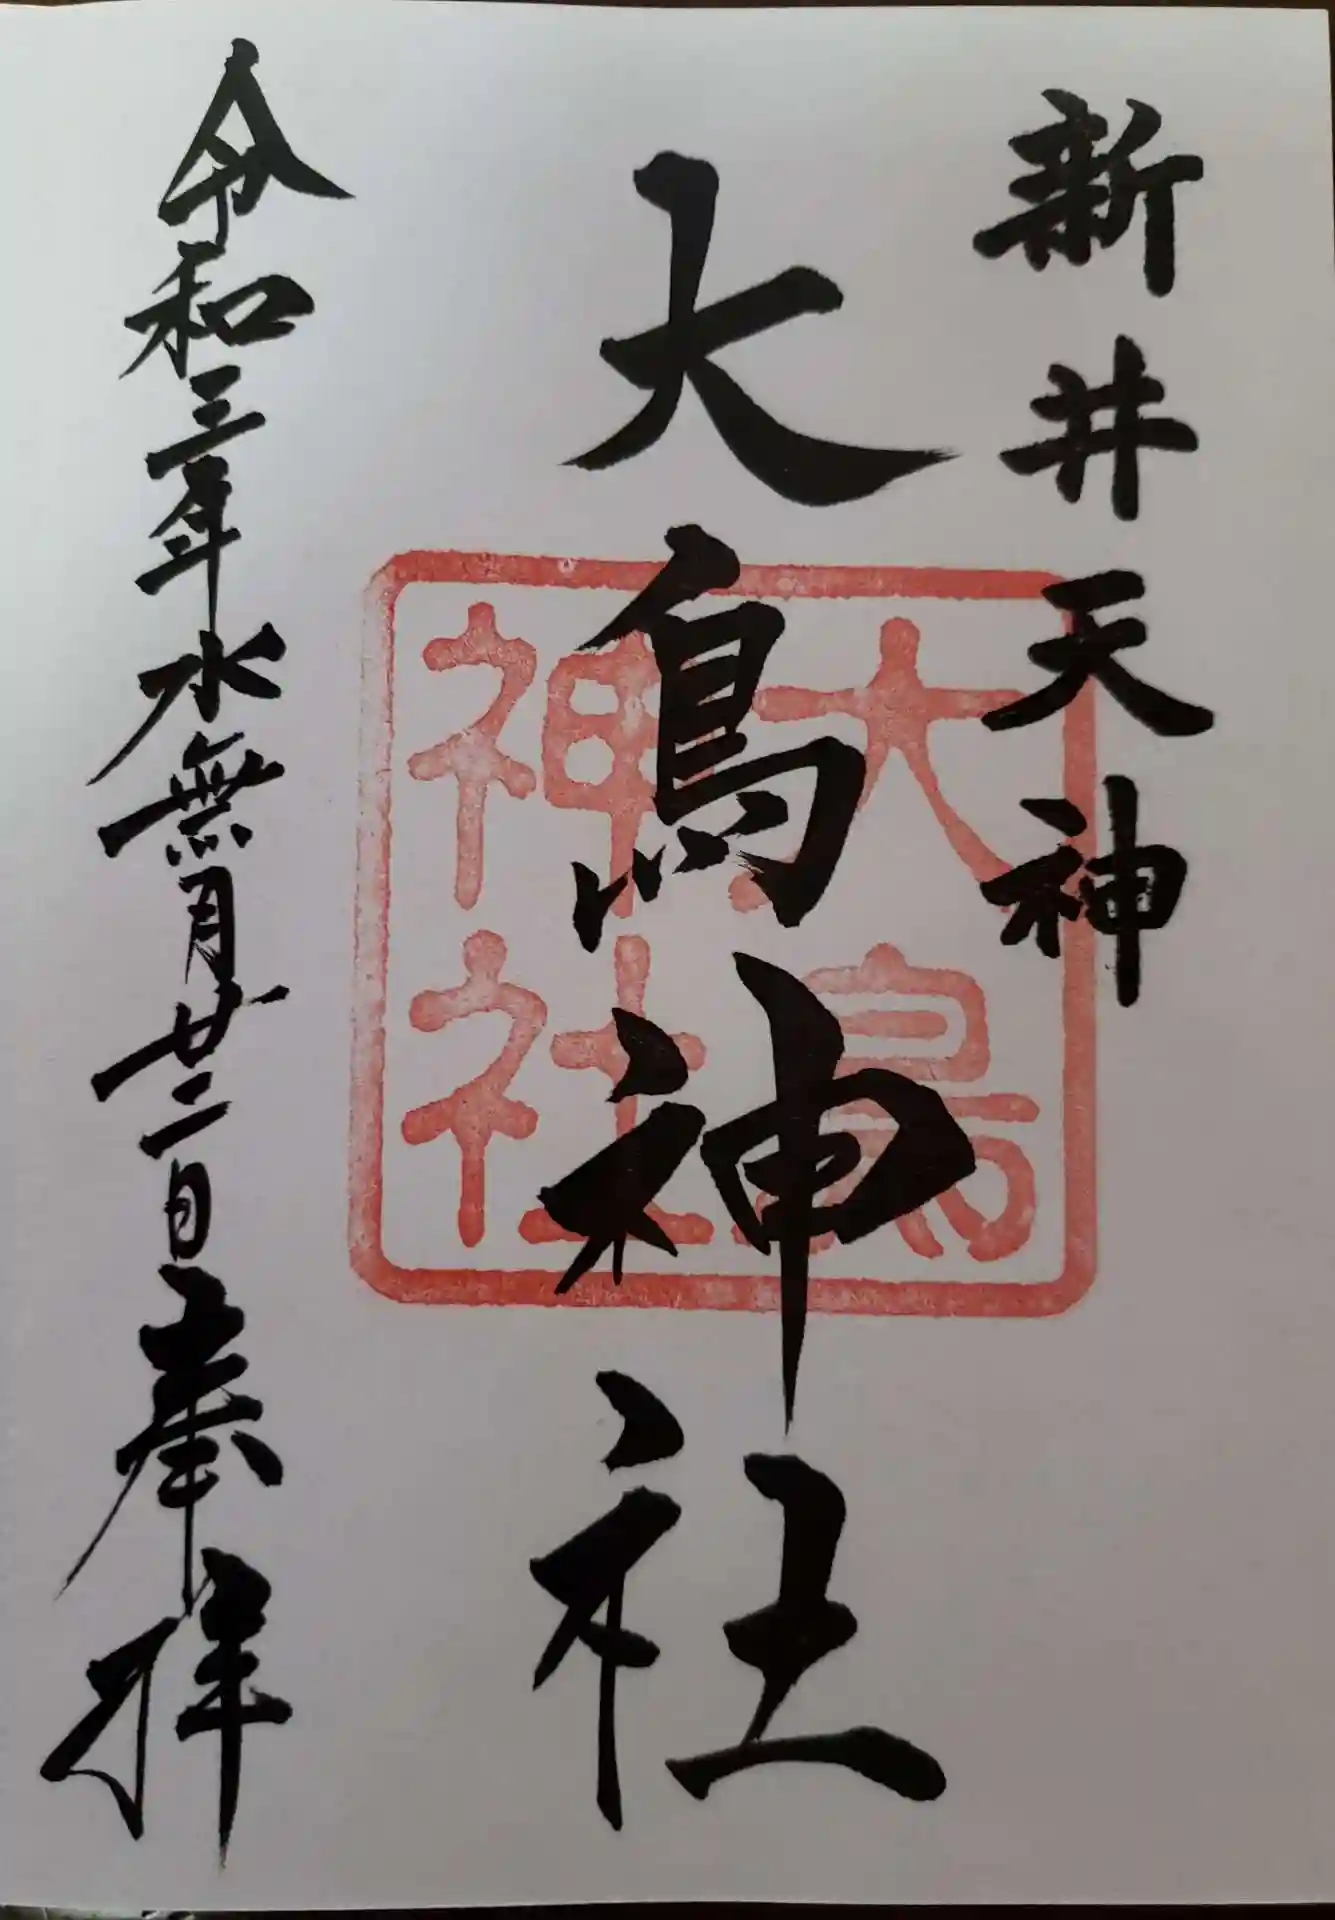 新井天神
大鳥神社
令和三年水無月廿二日奉拝
大鳥
神社